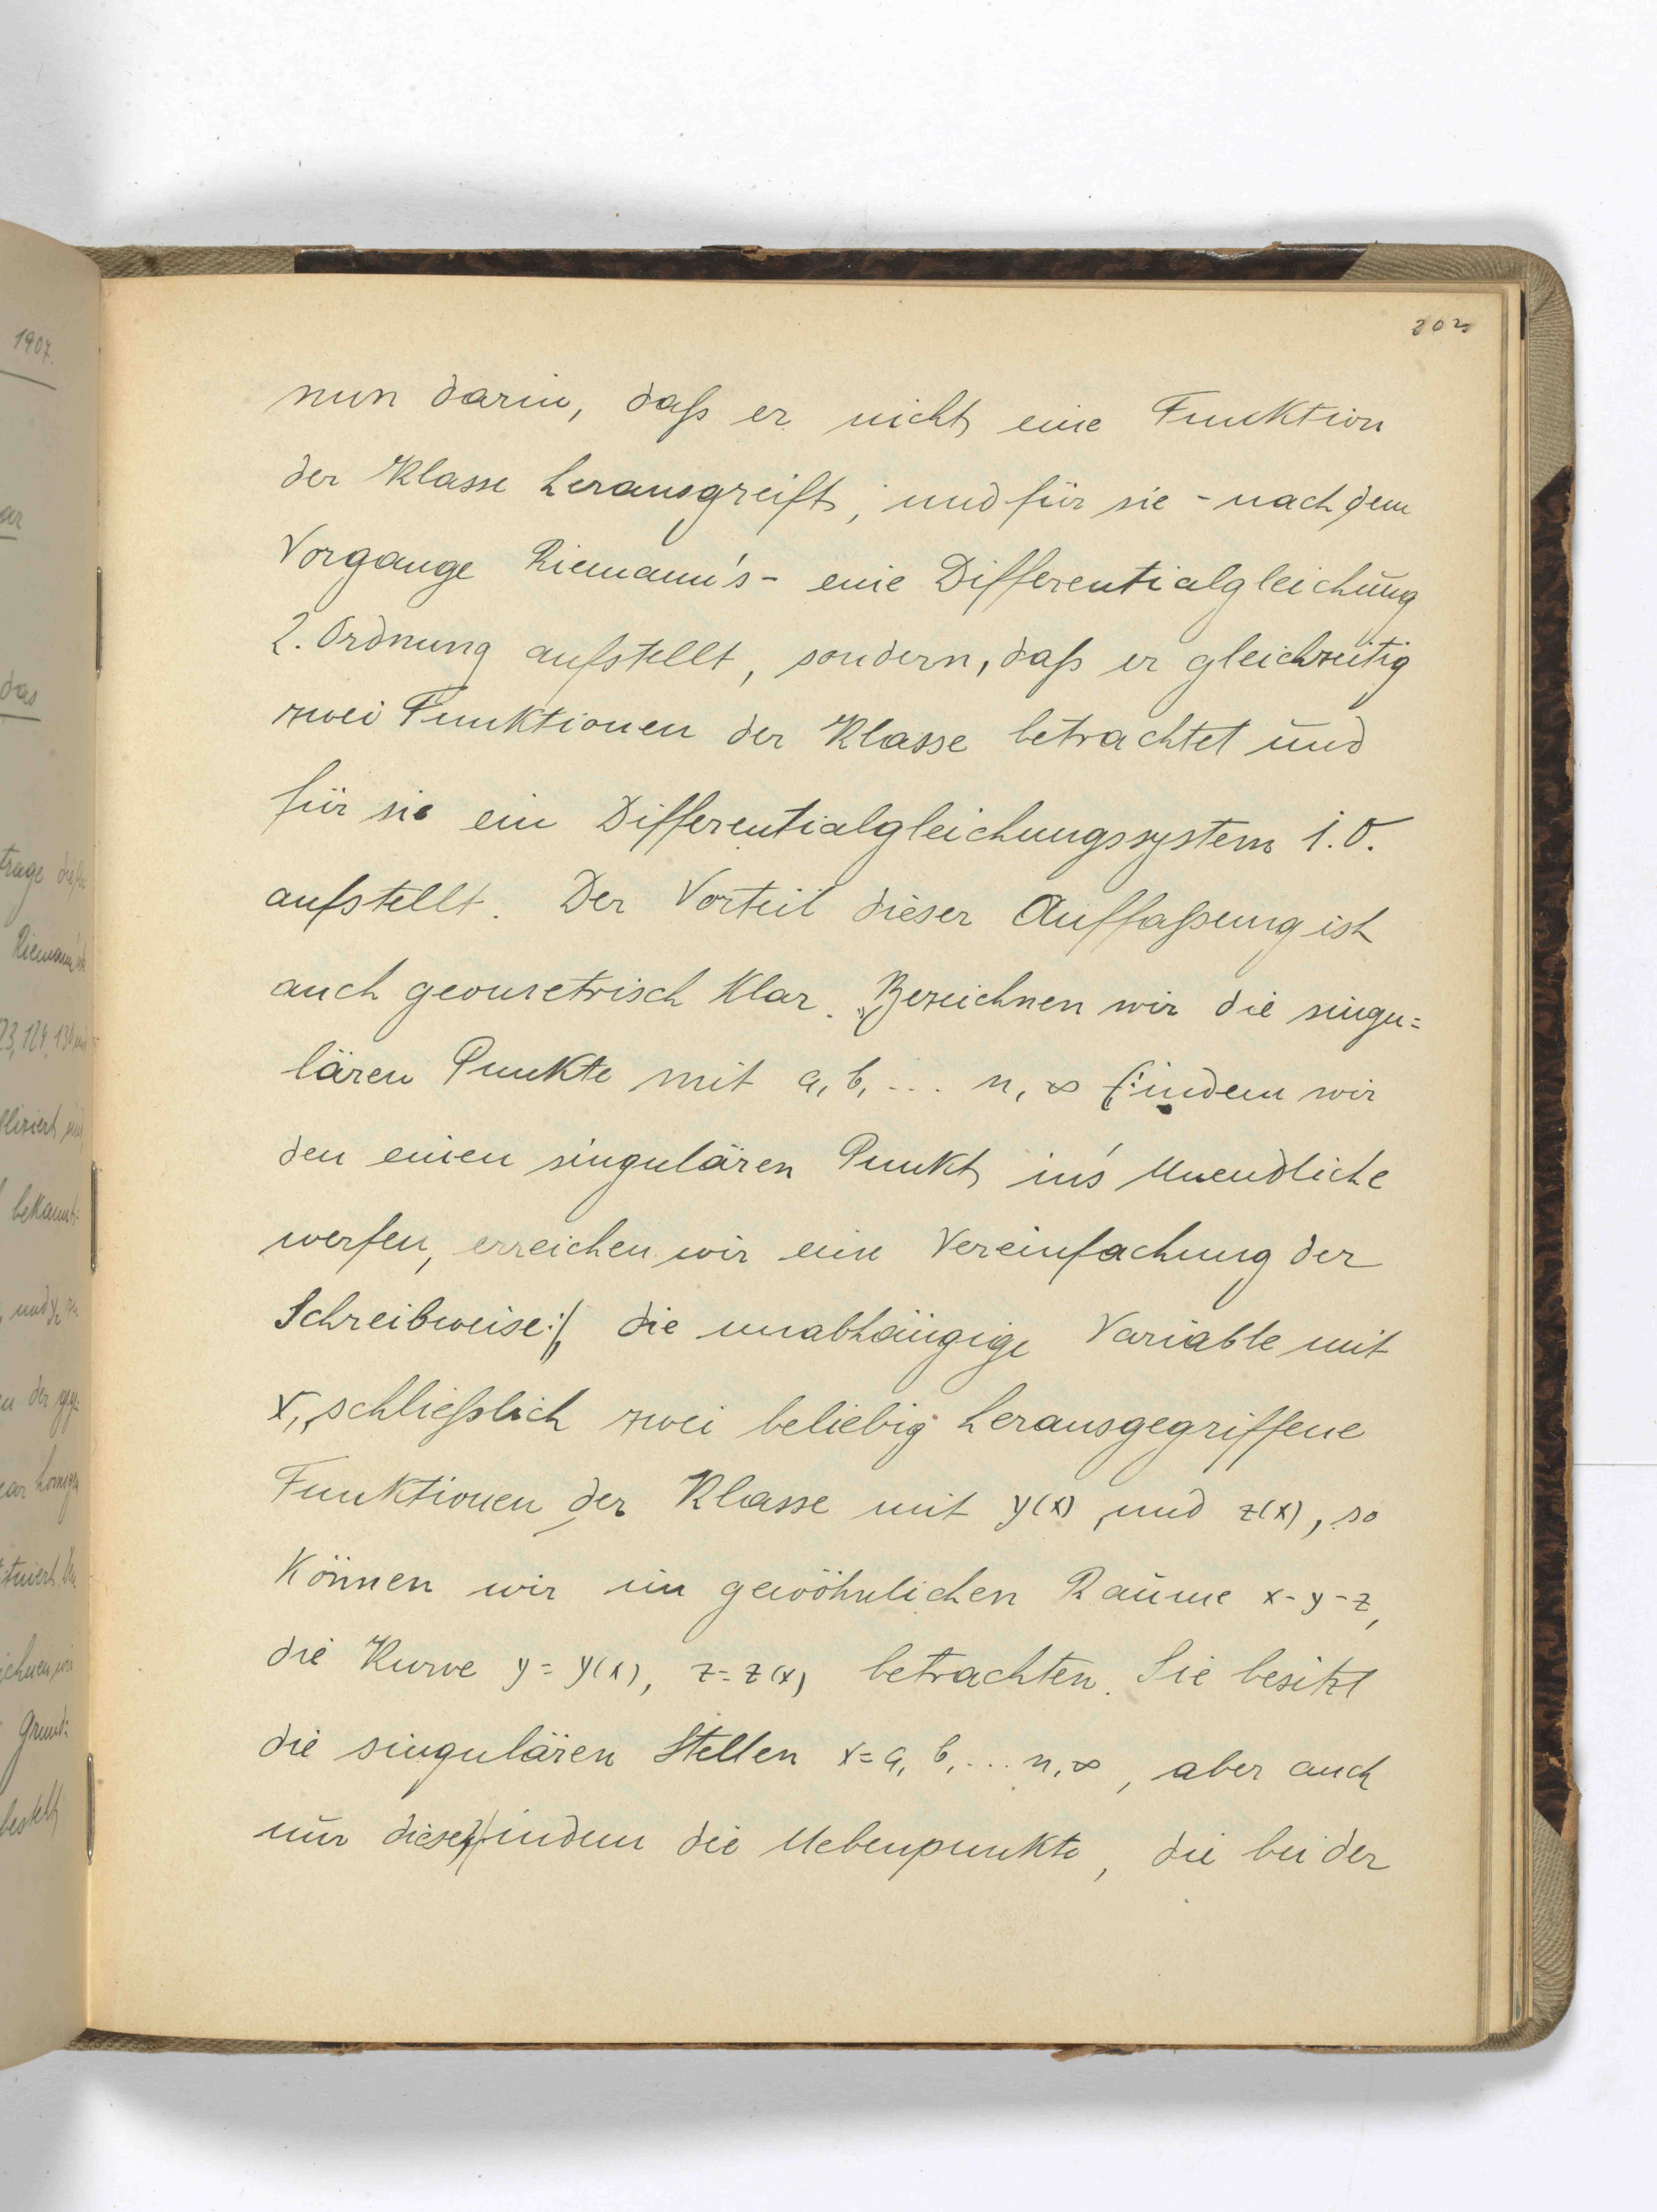 203
nun darin, daß er nicht eine Funktion
der Klasse herausgreift, und für sie - nach dem
Vorgange Riemann's - eine Differentialgleichung
2. Ordnung aufstellt, sondern, daß er gleichzeitig
zwei Funktionen der Klasse betrachtet und
für sie ein Differentialgleichungssystem 1. O.
aufstellt. Der Vorteil dieser Auffaßung ist
auch geometrisch klar. Bezeichnen wir die singu=
lären Punkte mit a, b, ... n, ∞ (: indem wir
den einen singulären Punkt in's Unendliche
werfen, erreichen wir eine Vereinfachung der
Schreibweise :), die unabhängige Variable mit
x, schließlich zwei beliebig herausgegriffene
Funktionen der Klasse mit y(x) und z(x), so
können wir im gewöhnlichen Raume x-y-z,
die Kurve y = y(x), z = z(x) betrachten. Sie besitzt
die singulären Stellen x = a, b, ... n, ∞, aber auch
nur diese, indem die Nebenpunkte, die bei der
1907.
ar
das
trage
Riemann
bekannt:
und y₂
Grund: